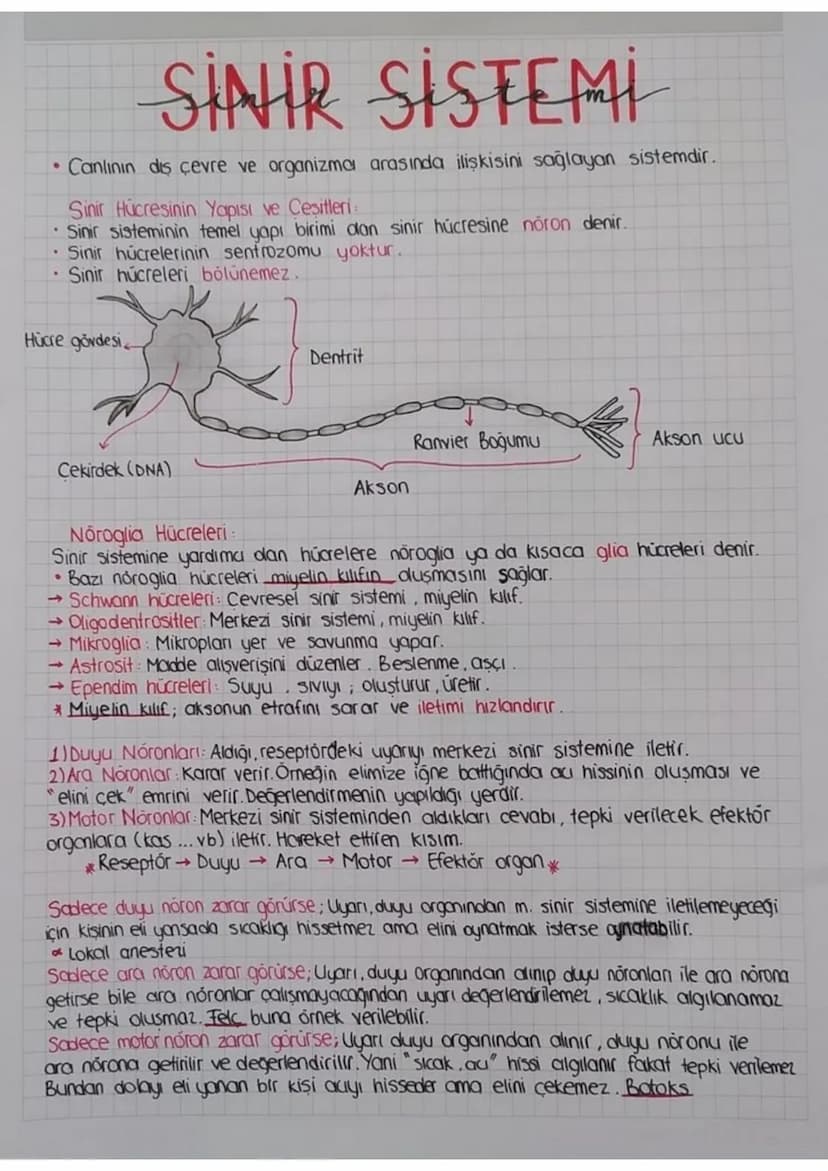 SİNİR SİSTEMİ
sinir sistemi
• Canlının dış çevre ve organizma arasında ilişkisini sağlayan sistemdir.
Sinir Hücresinin Yapısı ve Çeşitleri:
• Sinir sisteminin temel yapı birimi olan sinir hücresine nöron denir.
• Sinir hücrelerinin sentrozomu yoktur.
• Sinir hücreleri bölünemez.
Hücre gövdesi
Dentrit
Ranvier Boğumu
Akson ucu
Çekirdek (DNA)
Akson
Nöroglia Hücreleri:
Sinir sistemine yardımcı olan hücrelere nöroglia ya da kısaca glia hücreleri denir.
• Bazı nöroglia hücreleri miyelin kılıfın oluşmasını sağlar.
→ Schwann hücreleri: Çevresel sinir sistemi, miyelin kılıf.
→ Oligodentrositler: Merkezi sinir sistemi, miyelin kılıf.
→ Mikroglia: Mikropları yer ve savunma yapar.
→ Astrosit: Madde alışverişini düzenler. Beslenme, aşçı.
→ Ependim hücreleri: Suyu, sıvıyı; oluşturur, üretir.
* Miyelin kılıf; aksonun etrafını sarar ve iletimi hızlandırır.
1) Duyu Nöronları: Aldığı, reseptördeki uyarıyı merkezi sinir sistemine iletir.
2) Ara Nöronlar: Karar verir. Örneğin elimize iğne battığında acı hissinin oluşması ve
"elini çek" emrini verir. Değerlendirmenin yapıldığı yerdir.
3) Motor Nöronlar: Merkezi sinir sisteminden aldıkları cevabı, tepki verilecek efektör
organlara (kas ... vb) iletir. Hareket ettiren kısım.
* Reseptör → Duyu → Ara → Motor → Efektör organ *
Sadece duyu nöron zarar görürse; Uyarı, duyu organından m. sinir sistemine iletilemeyeceği
için kişinin eli yansada sıcaklığı hissetmez ama elini oynatmak isterse oynatabilir.
Lokal anestezi
Sadece ara nöron zarar görürse; Uyarı, duyu organından alınıp duyu nöronları ile ara nörona
getirse bile ara nöronlar çalışmayacağından uyarı değerlendirilemez, sıcaklık algılanamaz
ve tepki oluşmaz. Felç buna örnek verilebilir.
Sadece motor nöron zarar görürse; Uyarı duyu organından alınır, duyu nöronu ile
ara nörona getirilir ve değerlendirilir. Yani "sıcak, acı" hissi algılanır fakat tepki verilemez
Bundan dolayı eli yanan bir kişi acıyı hisseder ama elini çekemez. Botoks